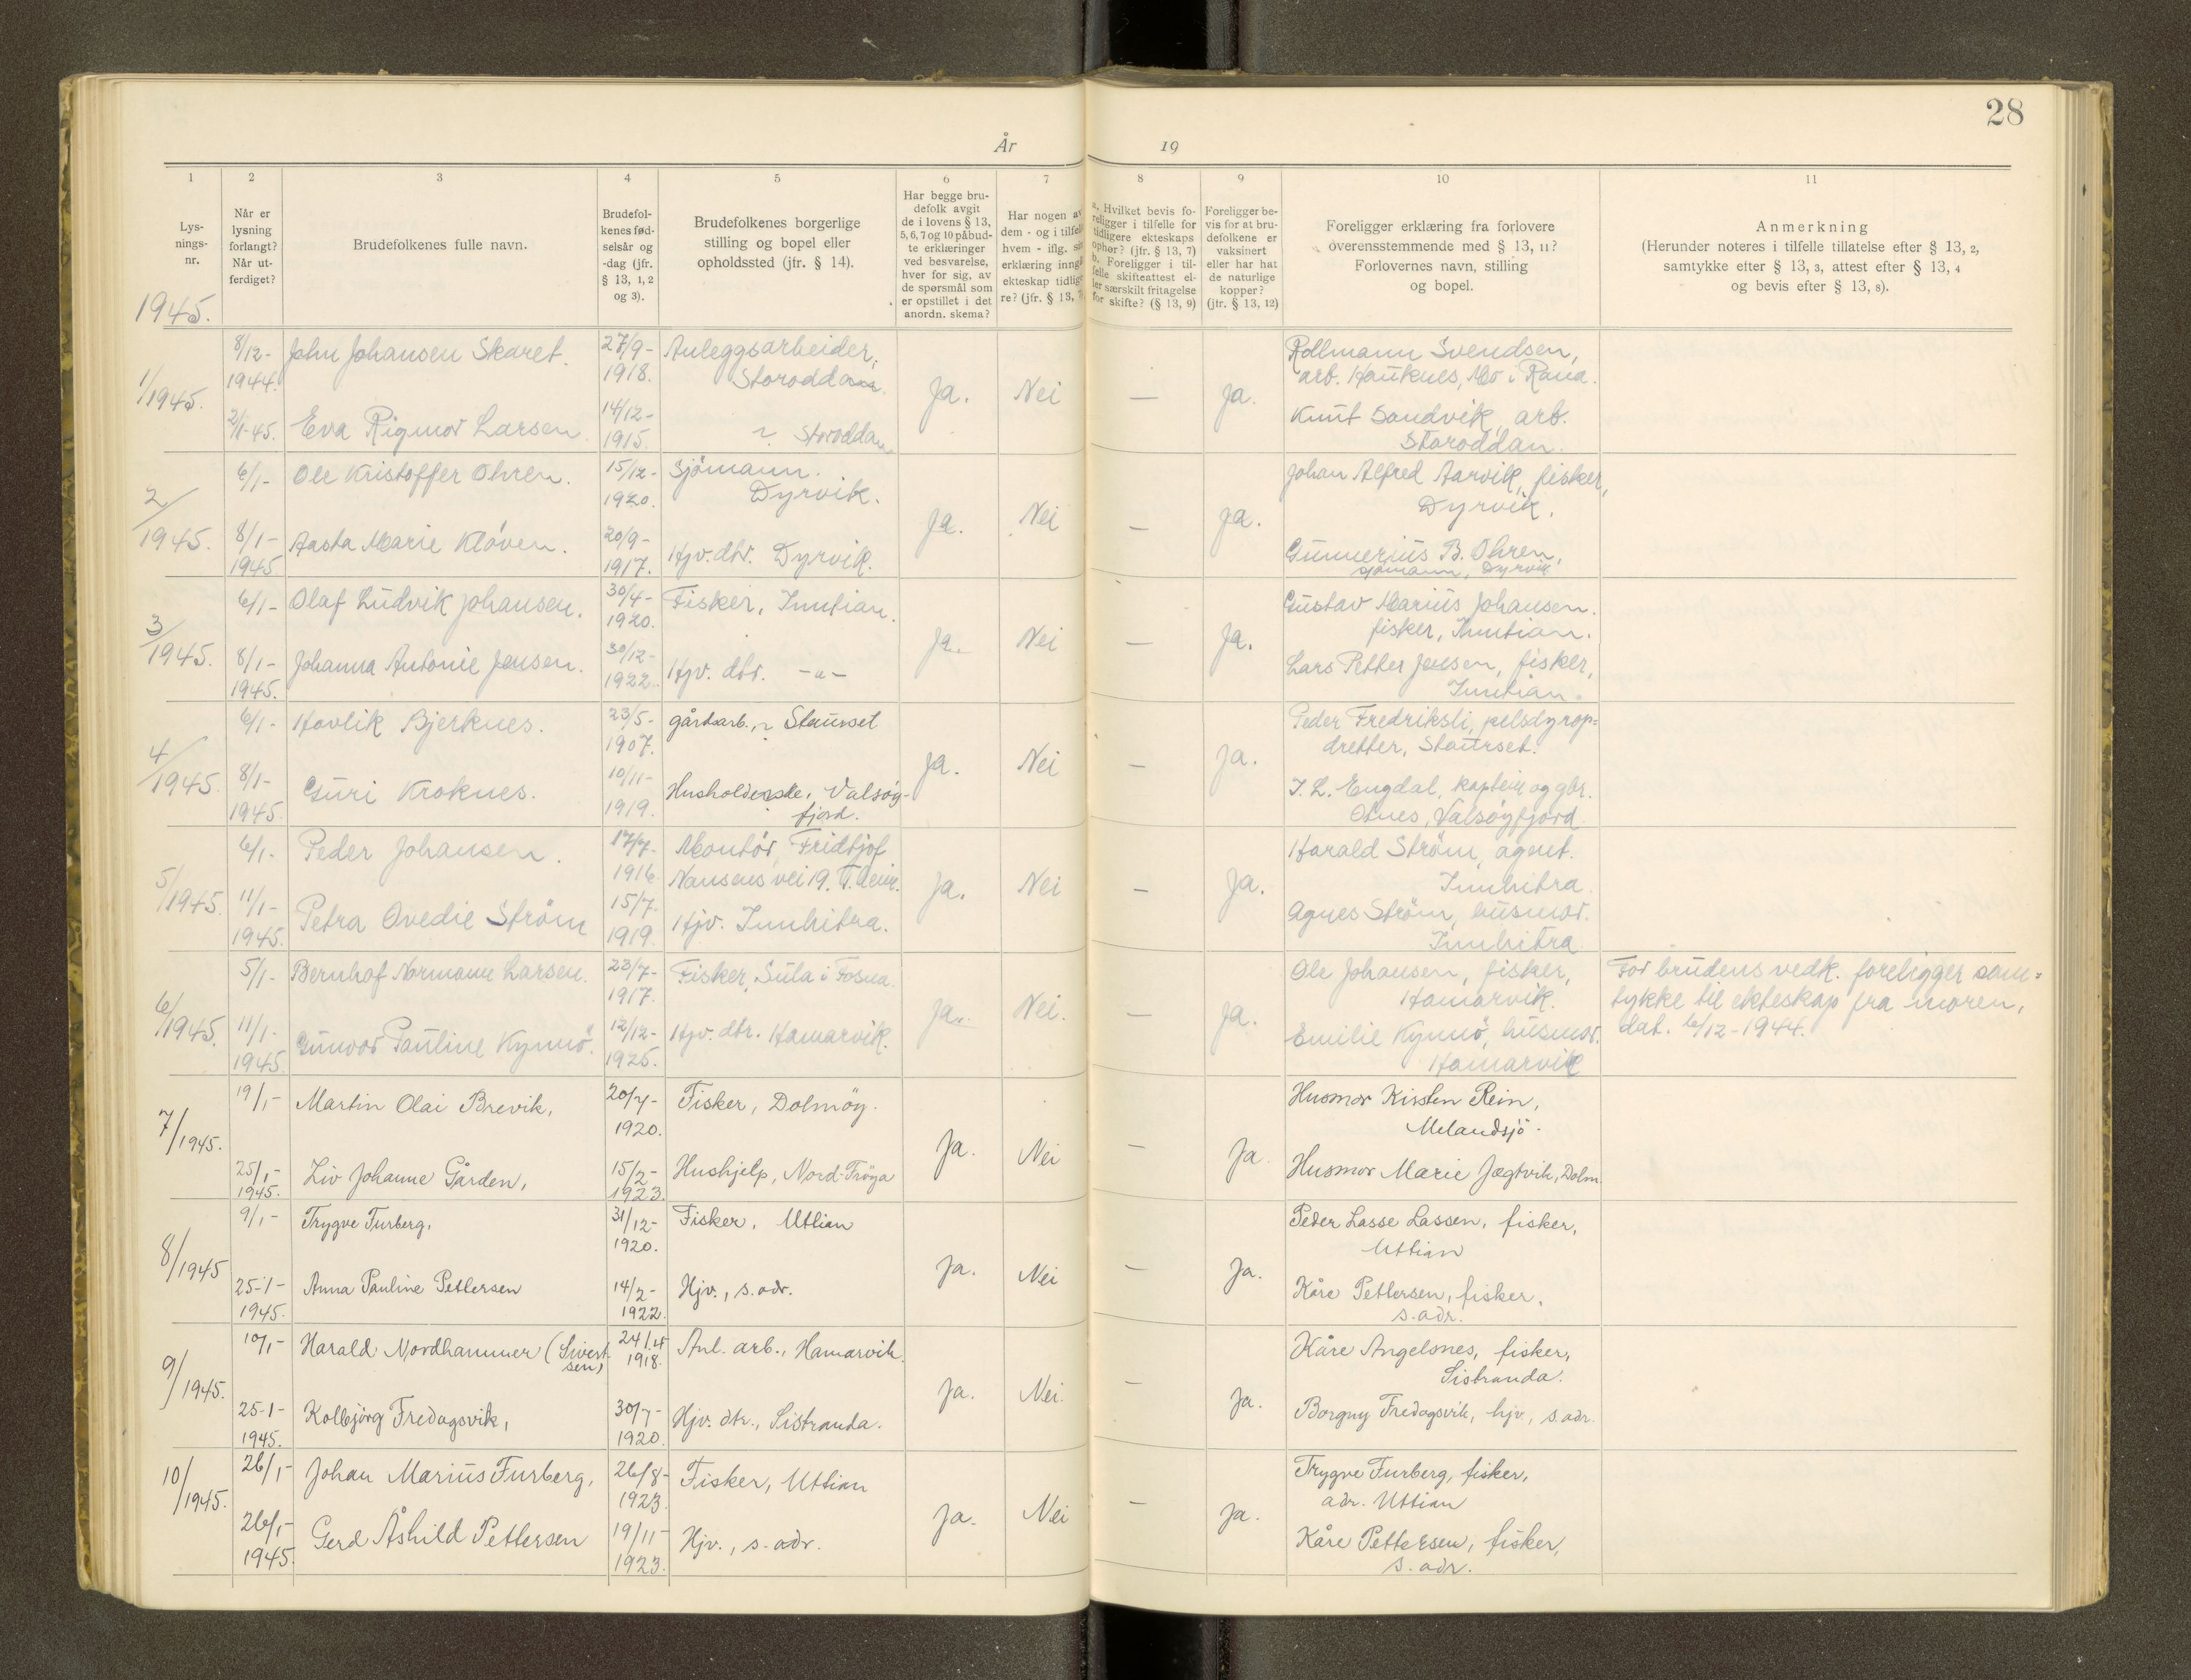 28
År 19
1 2 3 4 5 6 7 8 9 10 11
Lys-
nings-
nr.
Når er
lysning
forlangt?
Når ut-
ferdiget?
Brudefolkenes fulle navn.
Brudefol-
kenes fød-
selsår og
-dag (jfr.
§ 13, 1, 2
og 3).
Brudefolkenes borgerlige
stilling og bopel eller
opholdssted (jfr. § 14).
Har begge bru-
defolk avgit
de i lovens § 13,
5, 6, 7 og 10 påbud-
te erklæringer
ved besvarelse,
hver for sig, av
de spørsmål som
er opstillet i det
anordn. skema?
Har nogen av
dem - og i tilfelle
hvem - iflg. sin
erklæring inngå
ekteskap tidlige
re? (jfr. § 13, 7)
a. Hvilket bevis fo-
religger i tilfelle for
tidligere ekteskaps
ophør? (jfr. § 13, 7)
b. Foreligger i til-
felle skifteattest el-
ler særskilt fritagelse
for skifte? (§ 13, 9)
Foreligger be-
vis for at bru-
defolkene er
vaksinert
eller har hat
de naturlige
kopper?
(jfr. § 13, 12)
Foreligger erklæring fra forlovere
overensstemmende med § 13, 11?
Forlovernes navn, stilling
og bopel.
Anmerkning
(Herunder noteres i tilfelle tillatelse efter § 13, 2,
samtykke efter § 13, 3, attest efter § 13, 4
og bevis efter § 13, 8).
1945.
1/1945.
8/12-
1944.
2/1-45.
John Johansen Skaret.
Eva Rigmor Larsen.
27/9-
1918.
14/12-
1915.
Anleggsarbeider,
Storoddan.
~ Storoddan
Ja. Nei — Ja.
Rollmann Svendsen,
arb. Hauknes, Mo i Rana.
Knut Sandvik, arb.
Storoddan.
2/1945.
6/1-
8/1-
1945
Ole Kristoffer Ohren.
Aasta Marie Kløven.
15/12-
1920.
20/9-
1917.
Sjömann.
Dyrvik.
Hjv. dtr. Dyrvik.
Ja. Nei — Ja.
Johan Alfred Aarvik, fisker,
Dyrvik.
Gunnerius B. Ohren,
sjömann, Dyrvik
3/1945.
6/1-
8/1-
1945.
Olaf Ludvik Johansen.
Johanna Antonie Jensen.
30/4-
1920.
30/12-
1922.
Fisker, Inntian.
Hjv. dtr. -"-
Ja. Nei — Ja.
Gustav Marius Johansen.
fisker, Inntian.
Lars Petter Jensen, fisker,
Inntian.
4/1945.
6/1-
8/1-
1945.
Havlik Bjerknes.
Guri Kroknes.
23/5-
1907.
10/11-
1919.
gårdsarb., ~ Staurset
Husholderske, Valsøy-
fjord.
Ja. Nei — Ja.
Peder Fredriksli, pelsdyrop-
dretter, Staurset.
J. L. Engdal, kaptein og gbr.
Otnes, Valsøyfjord.
5/1945.
6/1-
11/1-
1945.
Peder Johansen.
Petra Ovedie Strøm
17/7.
1916
15/7.
1919.
Montør, Fridtjof
Nansens vei 19. T.heim.
Hjv. Innhitra.
Ja. Nei — Ja.
Harald Strøm, agent.
Innhitra.
Agnes Strøm, husmor.
Innhitra
6/1945.
5/1-
11/1-
1945
Bernhof Normann Larsen.
Gunvor Pauline Kynnö.
23/7-
1917.
12/12-
1925.
Fisker, Sula i Fosna.
Hjv. dtr. Hamarvik.
Ja. Nei. — Ja.
Ole Johansen, fisker,
Hamarvik.
Emilie Kynnö, husmor.
Hamarvik
For brudens vedk. foreligger sam-
tykke til ekteskap fra moren,
dat. 6/12-1944.
7/1945.
19/1-
25/1-
1945.
Martin Olai Brevik,
Liv Johanne Gården,
20/7-
1920.
15/2-
1923.
Fisker, Dolmøy.
Hushjelp, Nord-Frøya
Ja. Nei — Ja
Husmor Kirsten Rein,
Melandsjö.
Husmor Marie Jægtvik, Dolm.
8/1945
9/1-
25-1-
1945.
Trygve Furberg,
Anna Pauline Pettersen
31/12-
1920.
14/2-
1922.
Fisker, Uttian
Hjv., s. adr.
Ja. Nei — Ja.
Peder Lasse Lassen, fisker,
Uttian
Kåre Pettersen, fisker,
s. adr.
9/1945.
10/1-
25-1-
1945.
Harald Nordhammer (Sivert-
sen)
Kolbjörg Fredagsvik,
24/4
1918.
30/7-
1920.
Anl. arb., Hamarvik.
Hjv. dtr., Sistranda.
Ja. Nei. — Ja.
Kåre Angelsnes, fisker,
Sistranda.
Borgny Fredagsvik, hjv, s. adr.
10/1945.
26/1-
26/1-
1945.
Johan Marius Furberg,
Gerd Åshild Pettersen
26/8-
1923.
19/11-
1923.
Fisker, Uttian
Hjv., s. adr.
Ja. Nei — Ja.
Trygve Furberg, fisker,
adr. Uttian
Kåre Pettersen, fisker,
s. adr.